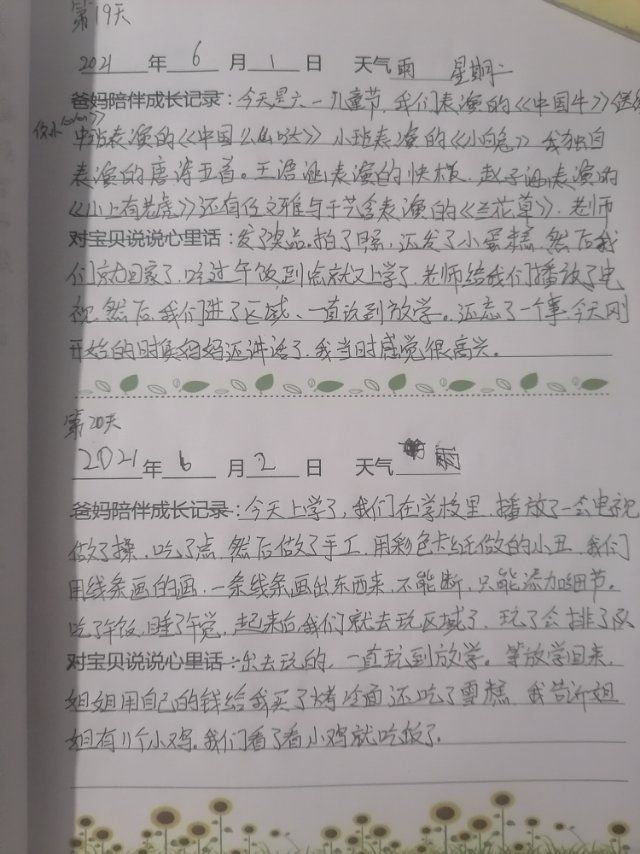 第19天
2021年6月1日 天气雨 星期二
爸妈陪伴成长记录:今天是六一儿童节,我们表演的《中国牛》
中班表演的《中国么么哒》小班表演的《小白兔》我独自
表演的唐诗五首。王浩涵表演的快板,赵子涵表演的
《小上有老虎》还有任文雅与于艺含表演的《兰花草》,老师
对宝贝说说心里话:发了奖品,拍了照,还发了小蛋糕,然后我
们就回家了,吃过午饭,到点就又上学了,老师给我们播放了电
视,然后,我们进了区域、一直玩到放学。还忘了一个事,今天刚
开始的时候妈妈还讲话了,我当时感觉很高兴。
第20天
2021年6月2日 天气雨
爸妈陪伴成长记录:今天上学了,我们在学校里,播放了一会电视
做了操,吃了点,然后做了手工,用彩色卡纸做的小丑,我们
用线条画的画,一条线条画出东西来,不能断,只能添加细节。
吃了午饭,睡了午觉,起来后我们就去玩区域了,玩了会排了队
对宝贝说说心里话:出去玩的,一直玩到放学。等放学回来,
姐姐用自己的钱给我买了烤冷面还吃了雪糕,我告诉姐
姐有11个小鸡。我们看了看小鸡就吃饭了。